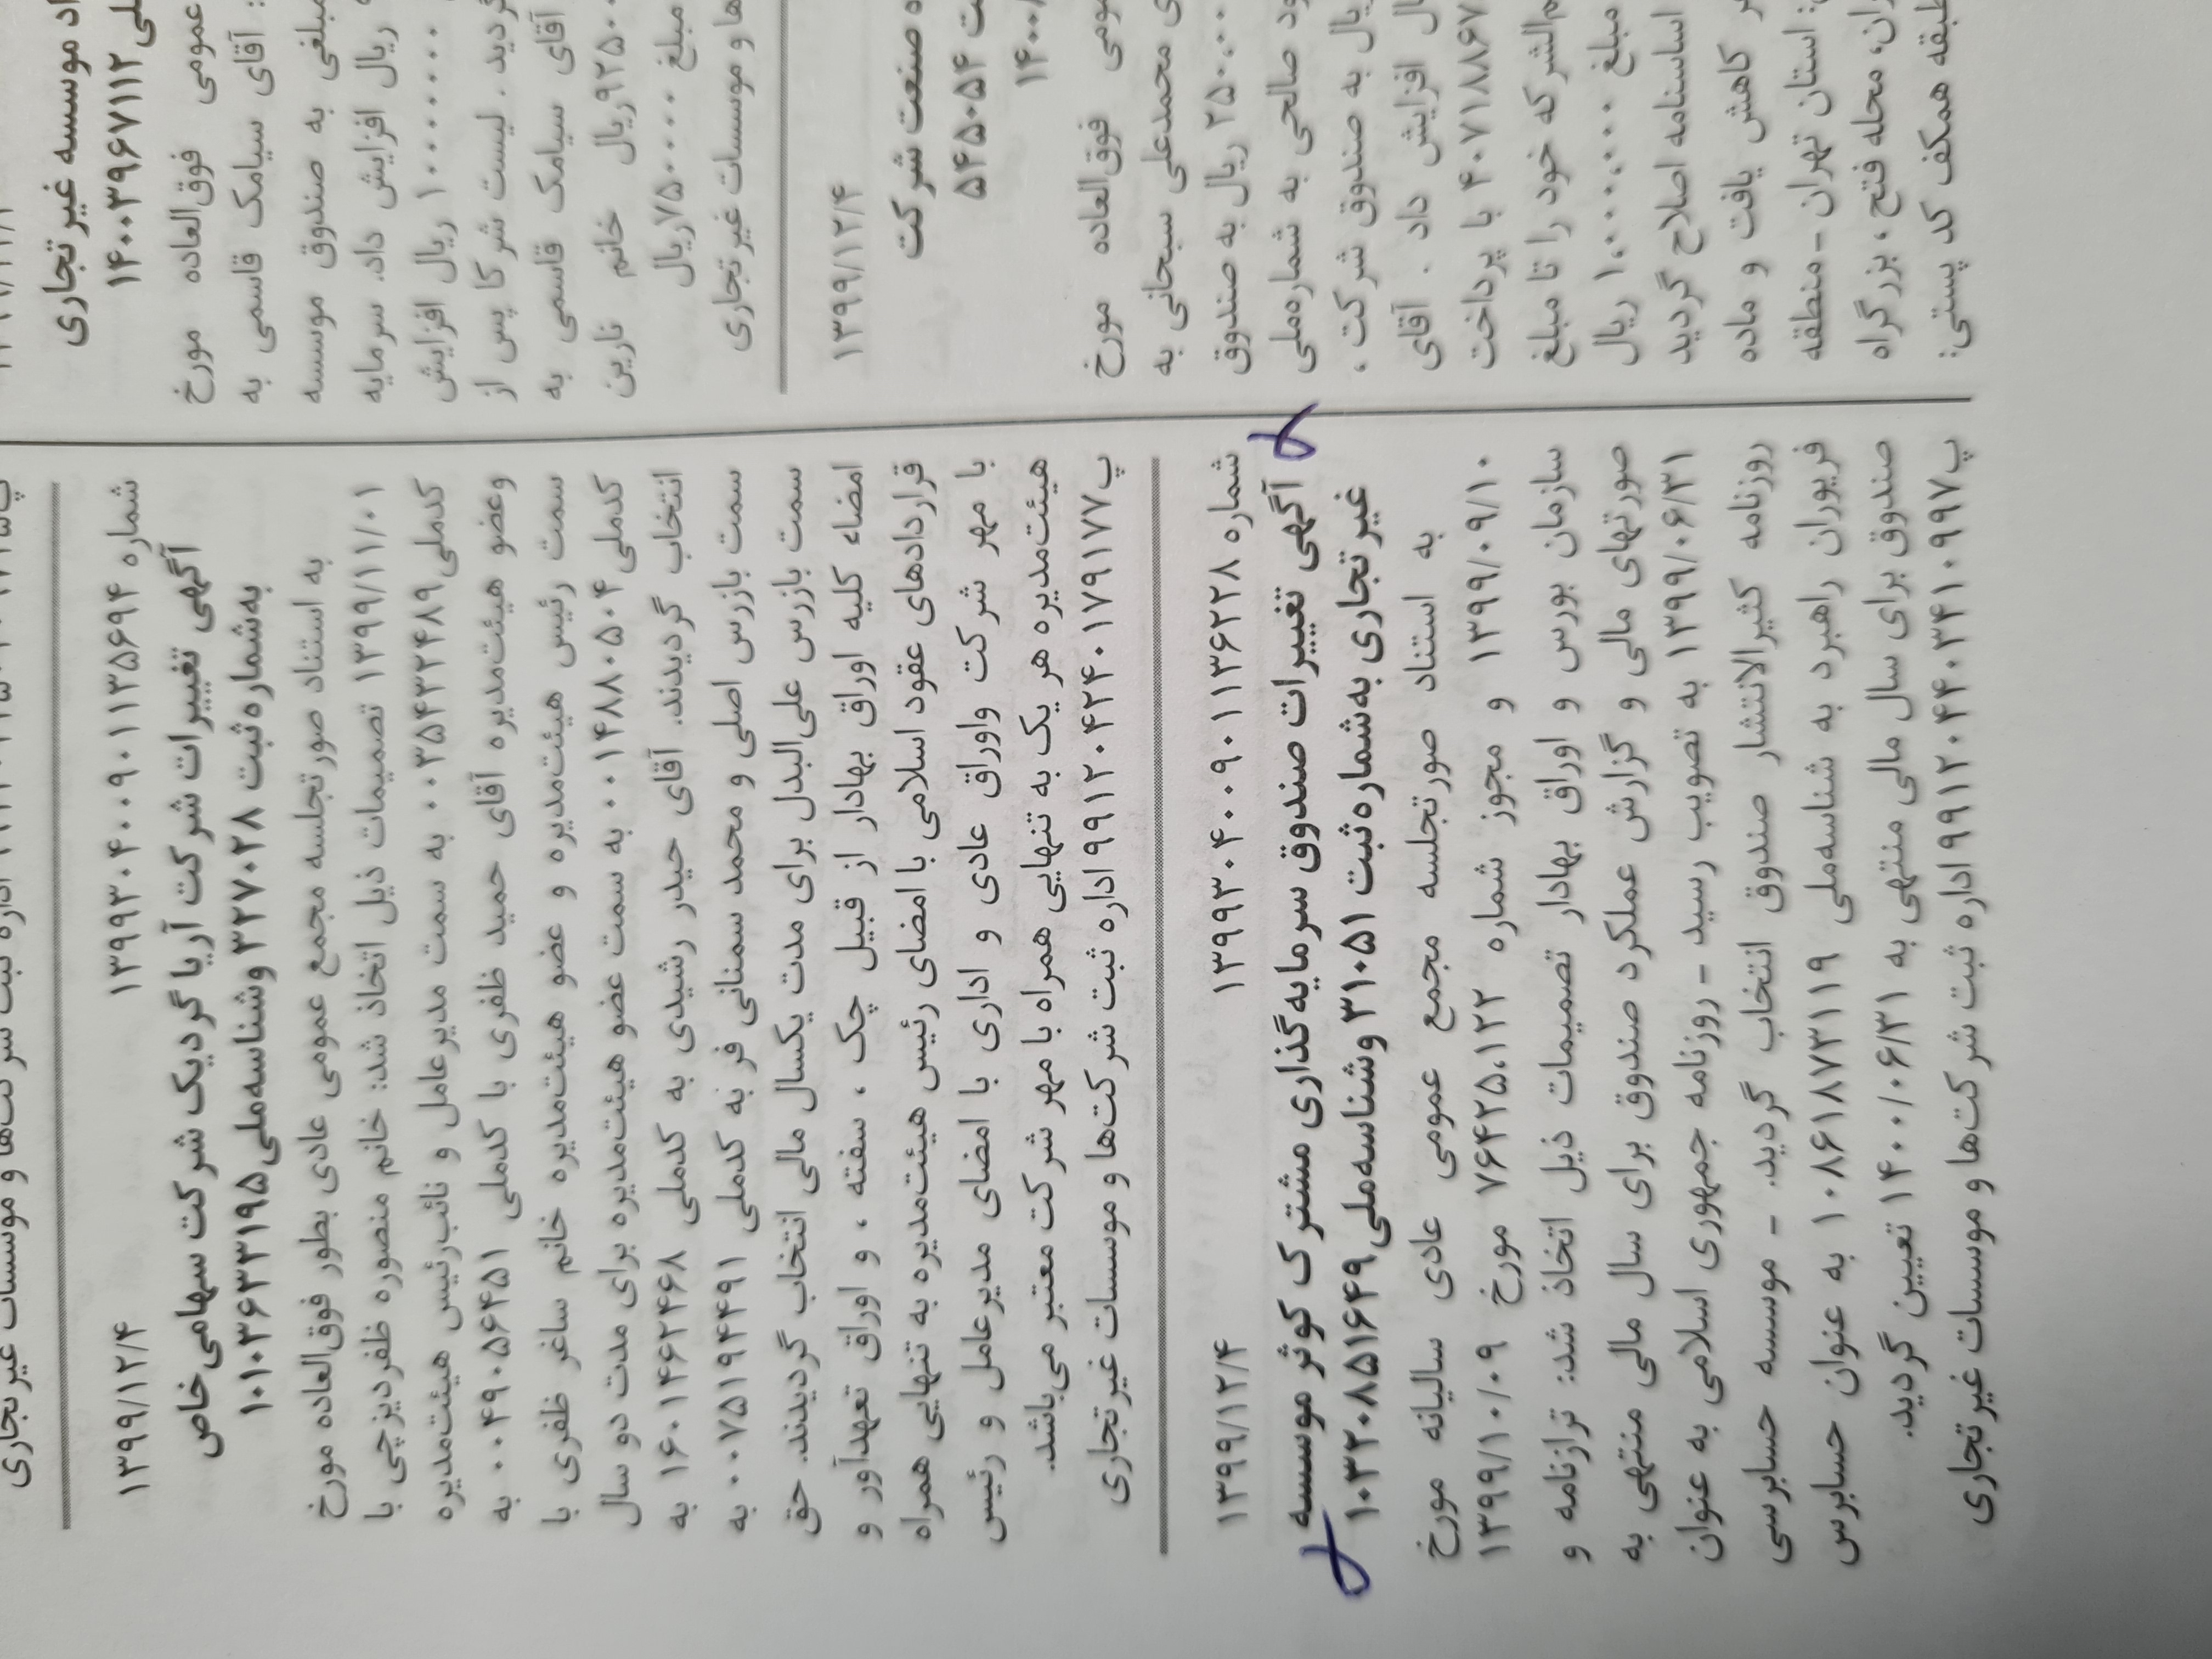 اد موسسه غیر تجاری
ملی ۱۴۰۰۳۹۶۷۱۱۲
عمومی فوق‌العاده مورخ
: آقای سیامک قاسمی به
مبلغی به صندوق موسسه
ریال افزایش داد. سرمایه
۱۰۰۰۰۰۰۰ ریال افزایش
گردید . لیست شرکا پس از
آقای سیامک قاسمی به
۹۲۵۰۰ریال خانم نارین
مبلغ ۷۵۰۰۰۰ریال
ها و موسسات غیرتجاری
۱۳۹۹/۱۲/۴
ه صنعت شرکت
ت ۵۴۵۰۵۴
۱۴۰۰۸
ومی فوق‌العاده مورخ
ی محمدعلی سبحانی به
۲۵۰،۰۰ ریال به صندوق
ود صالحی به شماره‌ملی
یال به صندوق شرکت ،
ال افزایش داد . آقای
۴۰۷۱۸۸۶۷ با پرداخت
م‌الشرکه خود را تا مبلغ
مبلغ ۱،۰۰۰،۰۰۰ ریال
اساسنامه اصلاح گردید
ر کاهش یافت و ماده
: استان تهران - منطقه
ران، محله فتح ، بزرگراه
طبقه همکف کد پستی:
شماره ۱۳۹۹۳۰۴۰۰۹۰۱۱۳۵۶۹۴ ۱۳۹۹/۱۲/۴
آگهی تغییرات شرکت آریا گردیک شرکت سهامی‌خاص
به‌شماره‌ثبت ۳۲۷۰۲۸ و شناسه‌ملی ۱۰۱۰۳۶۳۳۱۹۵
به استناد صورتجلسه مجمع عمومی عادی بطور فوق‌العاده مورخ
۱۳۹۹/۱۱/۰۱ تصمیمات ذیل اتخاذ شد: خانم منصوره ظفردیزچی با
کدملی ۰۰۳۵۴۳۲۴۸۹ به سمت مدیرعامل و نائب‌رئیس هیئت‌مدیره
وعضو هیئت‌مدیره آقای حمید ظفری با کدملی ۰۰۴۹۰۵۶۴۵۱ به
سمت رئیس هیئت‌مدیره و عضو هیئت‌مدیره خانم ساغر ظفری با
کدملی ۰۰۱۴۸۸۰۵۰۴ به سمت عضو هیئت‌مدیره برای مدت دو سال
انتخاب گردیدند. آقای حیدر رشیدی به کدملی ۱۶۰۱۴۶۲۴۶۸ به
سمت بازرس اصلی و محمد سمنانی فر به کدملی ۰۰۷۵۱۹۴۴۹۱ به
سمت بازرس علی‌البدل برای مدت یکسال مالی انتخاب گردیدند. حق
امضاء کلیه اوراق بهادار از قبیل چک ، سفته ، و اوراق تعهدآور و
قراردادهای عقود اسلامی با امضای رئیس هیئت‌مدیره به تنهایی همراه
با مهر شرکت واوراق عادی و اداری با امضای مدیرعامل و رئیس
هیئت‌مدیره هر یک به تنهایی همراه با مهر شرکت معتبر می‌باشد.
پ۹۹۱۲۰۴۲۴۰۱۷۹۱۷۷ اداره ثبت شرکت‌ها و موسسات غیرتجاری
شماره ۱۳۹۹۳۰۴۰۰۹۰۱۱۳۶۲۲۸ ۱۳۹۹/۱۲/۴
آگهی تغییرات صندوق سرمایه‌گذاری مشترک کوثر موسسه
غیر تجاری به‌شماره‌ثبت ۳۱۰۵۱ و شناسه‌ملی ۱۰۳۲۰۸۵۱۶۴۹
به استناد صورتجلسه مجمع عمومی عادی سالیانه مورخ
۱۳۹۹/۰۹/۱۰ و مجوز شماره ۷۶۴۲۵،۱۲۲ مورخ ۱۳۹۹/۱۰/۰۹
سازمان بورس و اوراق بهادار تصمیمات ذیل اتخاذ شد: ترازنامه و
صورتهای مالی و گزارش عملکرد صندوق برای سال مالی منتهی به
۱۳۹۹/۰۶/۳۱ به تصویب رسید - روزنامه جمهوری اسلامی به عنوان
روزنامه کثیرالانتشار صندوق انتخاب گردید. - موسسه حسابرسی
فریوران راهبرد به شناسه‌ملی ۱۰۸۶۱۸۷۳۱۱۹ به عنوان حسابرس
صندوق برای سال مالی منتهی به ۱۴۰۰/۰۶/۳۱ تعیین گردید.
پ۹۹۱۲۰۴۴۰۳۴۱۰۹۹۷ اداره ثبت شرکت‌ها و موسسات غیرتجاری